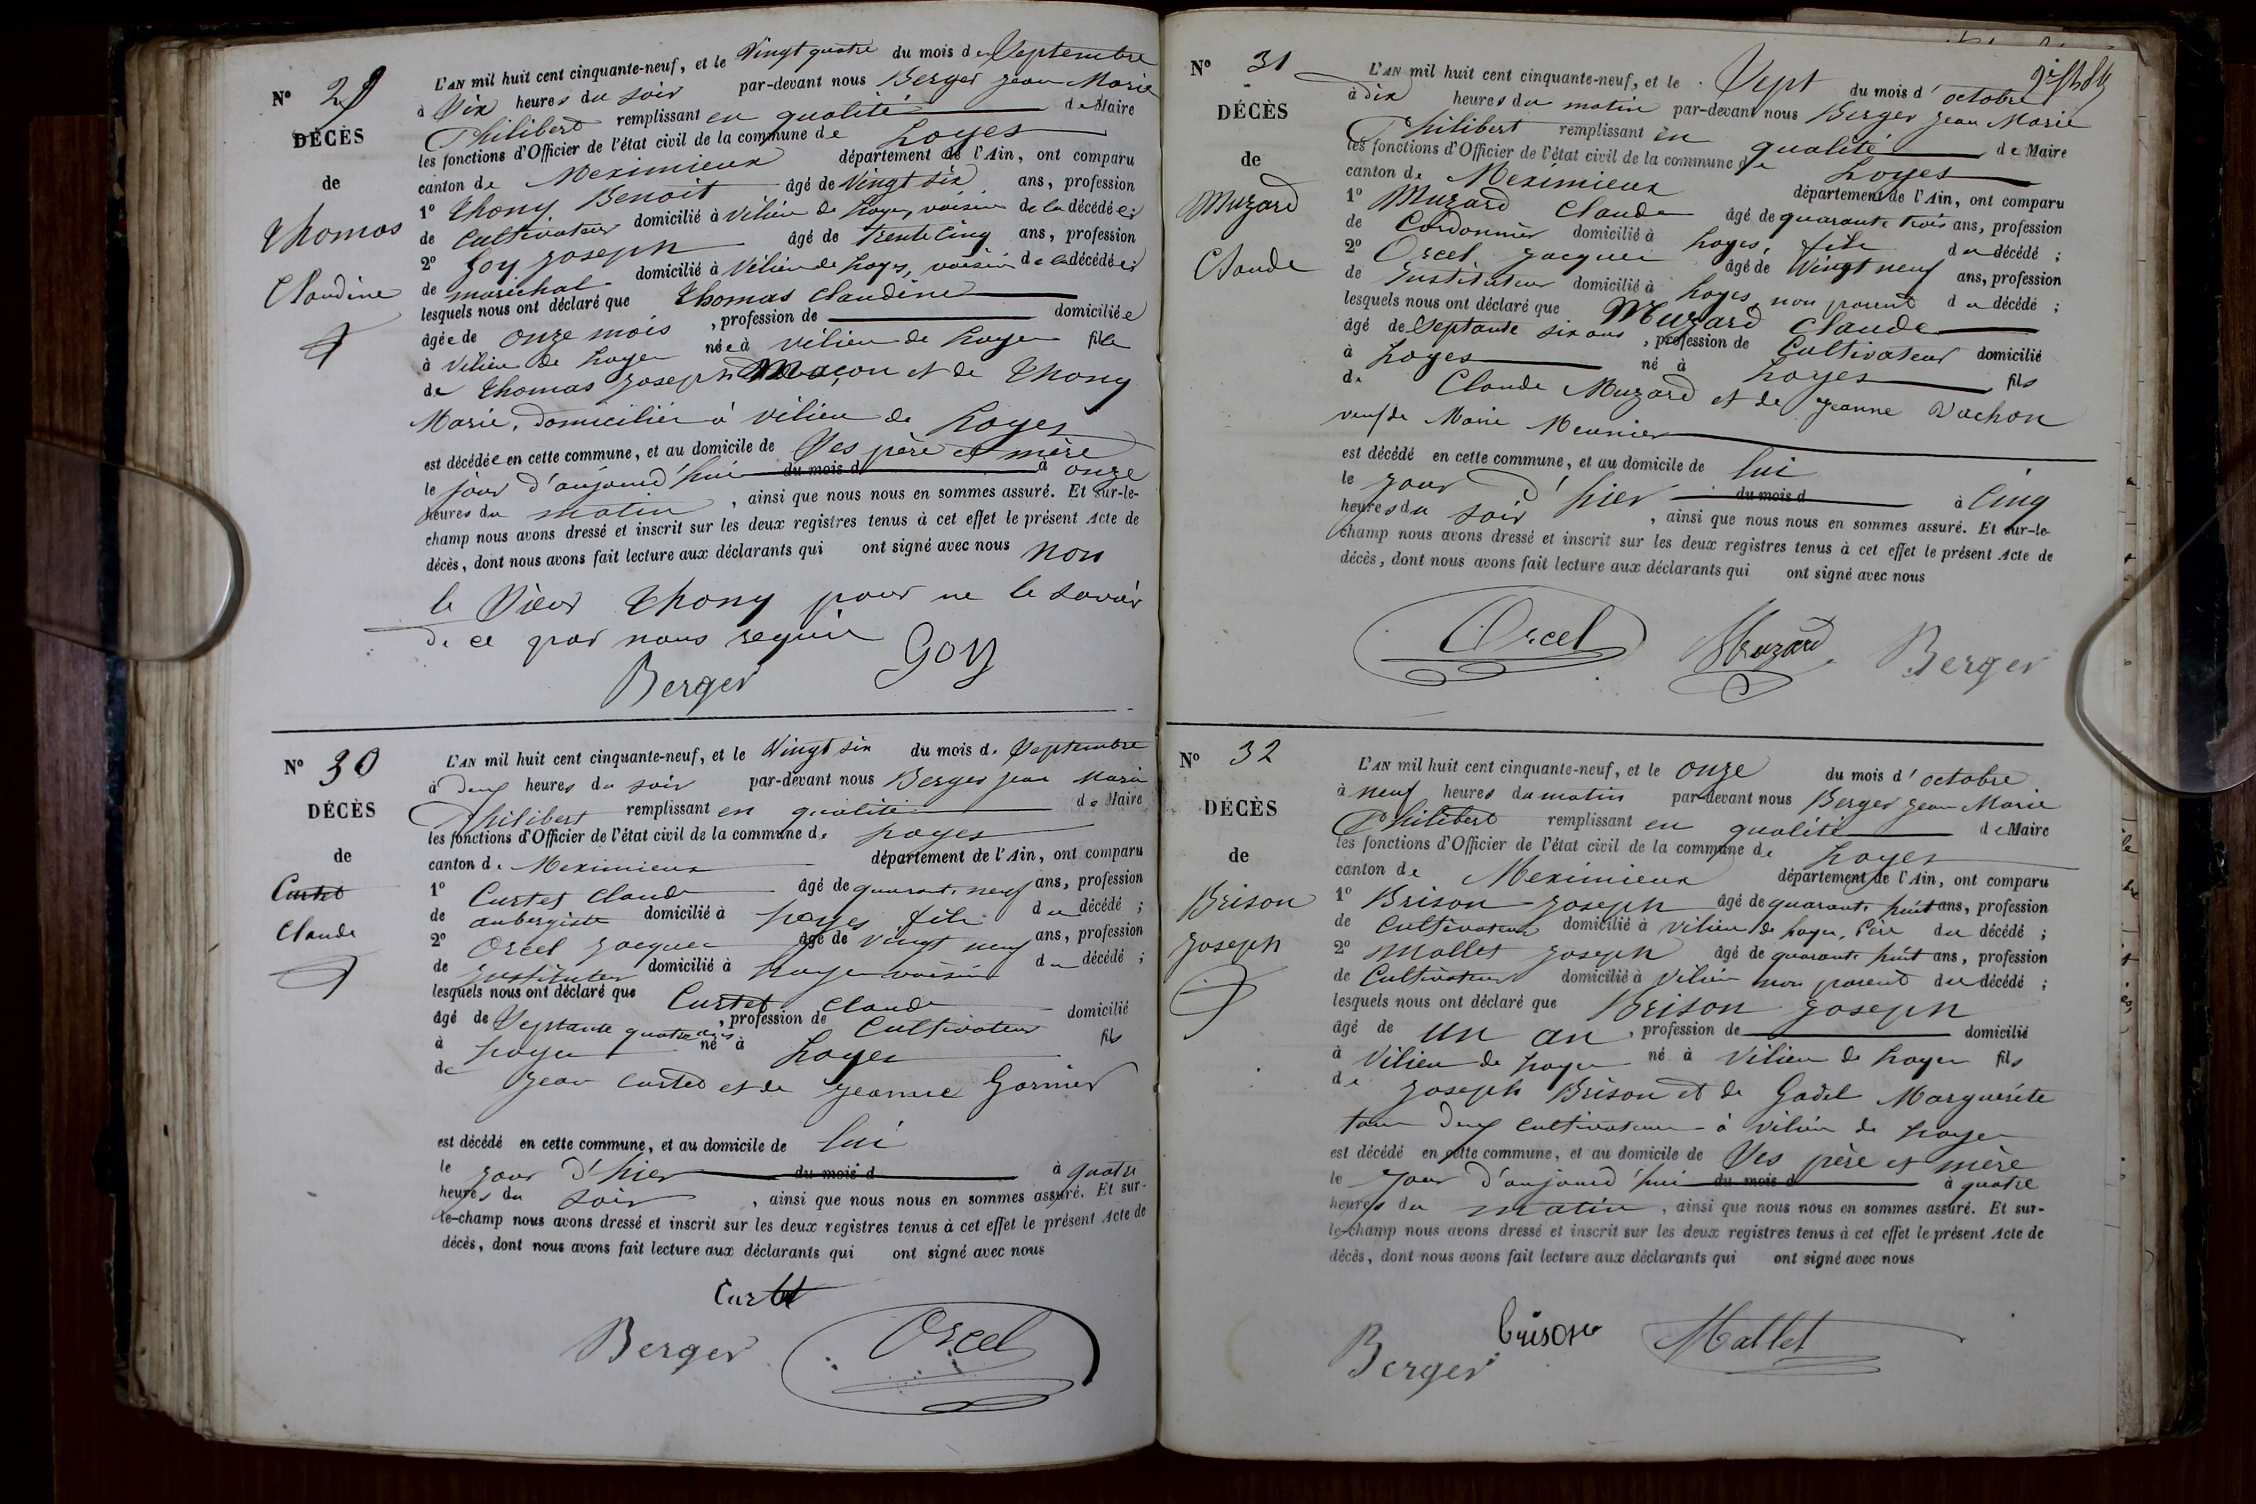 N° 29
DÉCÈS
de
Thomas
Claudine
L'AN mil huit cent cinquante-neuf, et le Vingt quatre du mois de Septembre
à Six heures du soir par-devant nous Berger Jean Marie
Philibert remplissant en qualité de Maire
les fonctions d'Officier de l'état civil de la commune de Loyes
canton de Meximieux département de l'Ain, ont comparu
1° Thony Benoit âgé de Vingt six ans, profession
de Cultivateur domicilié à Vilieu de Loyes, voisin de la décédée;
2° Goy Joseph âgé de trente cinq ans, profession
de maréchal domicilié à Vilieu de Loyes, voisin de la décédée;
lesquels nous ont déclaré que Thomas Claudine
âgée de onze mois, profession de domiciliée
à Vilieu de Loyes née à Vilieu de Loyes fille
de Thomas Joseph Maçon et de Thony
Marie, domiciliés à Vilieu de Loyes
est décédée en cette commune, et au domicile de Ses père et mère
le jour d'aujourd'hui du mois d à onze
heures du matin, ainsi que nous nous en sommes assuré. Et sur-le-
champ nous avons dressé et inscrit sur les deux registres tenus à cet effet le présent Acte de
décès, dont nous avons fait lecture aux déclarants qui ont signé avec nous non
le Sieur Thony pour ne le savoir
de ce par nous requis
Goy
Berger
N° 30
DÉCÈS
de
Curtet
Claude
L'AN mil huit cent cinquante-neuf, et le Vingt six du mois de Septembre
à deux heures du soir par-devant nous Berger Jean Marie
Philibert remplissant en qualité de Maire
les fonctions d'Officier de l'état civil de la commune de Loyes
canton de Meximieux département de l'Ain, ont comparu
1° Curtet Claude âgé de quarante neuf ans, profession
de aubergiste domicilié à Loyes fils du décédé;
2° Orcel Jacques âgé de vingt neuf ans, profession
de instituteur domicilié à Loyes voisin du décédé;
lesquels nous ont déclaré que Curtet Claude
âgé de Septante quatre ans, profession de Cultivateur domicilié
à Loyes né à Loyes fils
de Jean Curtet et de Jeanne Garnier
est décédé en cette commune, et au domicile de lui
le jour d'hier du mois d à quatre
heures du soir, ainsi que nous nous en sommes assuré. Et sur-
le-champ nous avons dressé et inscrit sur les deux registres tenus à cet effet le présent Acte de
décès, dont nous avons fait lecture aux déclarants qui ont signé avec nous
Curtet
Berger Orcel
N° 31
DÉCÈS
de
Muzard
Claude
L'AN mil huit cent cinquante-neuf, et le Sept du mois d'octobre
à dix heures du matin par-devant nous Berger Jean Marie
Philibert remplissant en qualité de Maire
les fonctions d'Officier de l'état civil de la commune de Loyes
canton de Meximieux département de l'Ain, ont comparu
1° Muzard Claude âgé de quarante trois ans, profession
de Cordonnier domicilié à Loyes, fils du décédé;
2° Orcel Jacques âgé de Vingt neuf ans, profession
de Instituteur domicilié à Loyes, non parent du décédé;
lesquels nous ont déclaré que Muzard Claude
âgé de Septante six ans, profession de Cultivateur domicilié
à Loyes né à Loyes fils
de Claude Muzard et de Jeanne Vachon
veuf de Marie Meunier
est décédé en cette commune, et au domicile de lui
le jour d'hier du mois d à Cinq
heures du soir, ainsi que nous nous en sommes assuré. Et sur-le-
champ nous avons dressé et inscrit sur les deux registres tenus à cet effet le présent Acte de
décès, dont nous avons fait lecture aux déclarants qui ont signé avec nous
Orcel Muzard Berger
N° 32
DÉCÈS
de
Brison
Joseph
L'AN mil huit cent cinquante-neuf, et le onze du mois d'octobre
à neuf heures du matin par-devant nous Berger Jean Marie
Philibert remplissant en qualité de Maire
les fonctions d'Officier de l'état civil de la commune de Loyes
canton de Meximieux département de l'Ain, ont comparu
1° Brison Joseph âgé de quarante huit ans, profession
de Cultivateur domicilié à Vilieu de Loyes, Père du décédé;
2° Mallet Joseph âgé de quarante huit ans, profession
de Cultivateur domicilié à Vilieu non parent du décédé;
lesquels nous ont déclaré que Brison Joseph
âgé de un an, profession de domicilié
à Vilieu de Loyes né à Vilieu de Loyes fils
de Joseph Brison et de Gadel Marguerite
tous deux cultivateurs à Vilieu de Loyes
est décédé en cette commune, et au domicile de Ses père et mère
le Jour d'aujourd'hui du mois d à quatre
heures du matin, ainsi que nous nous en sommes assuré. Et sur-
le-champ nous avons dressé et inscrit sur les deux registres tenus à cet effet le présent Acte de
décès, dont nous avons fait lecture aux déclarants qui ont signé avec nous
Brison Mallet
Berger